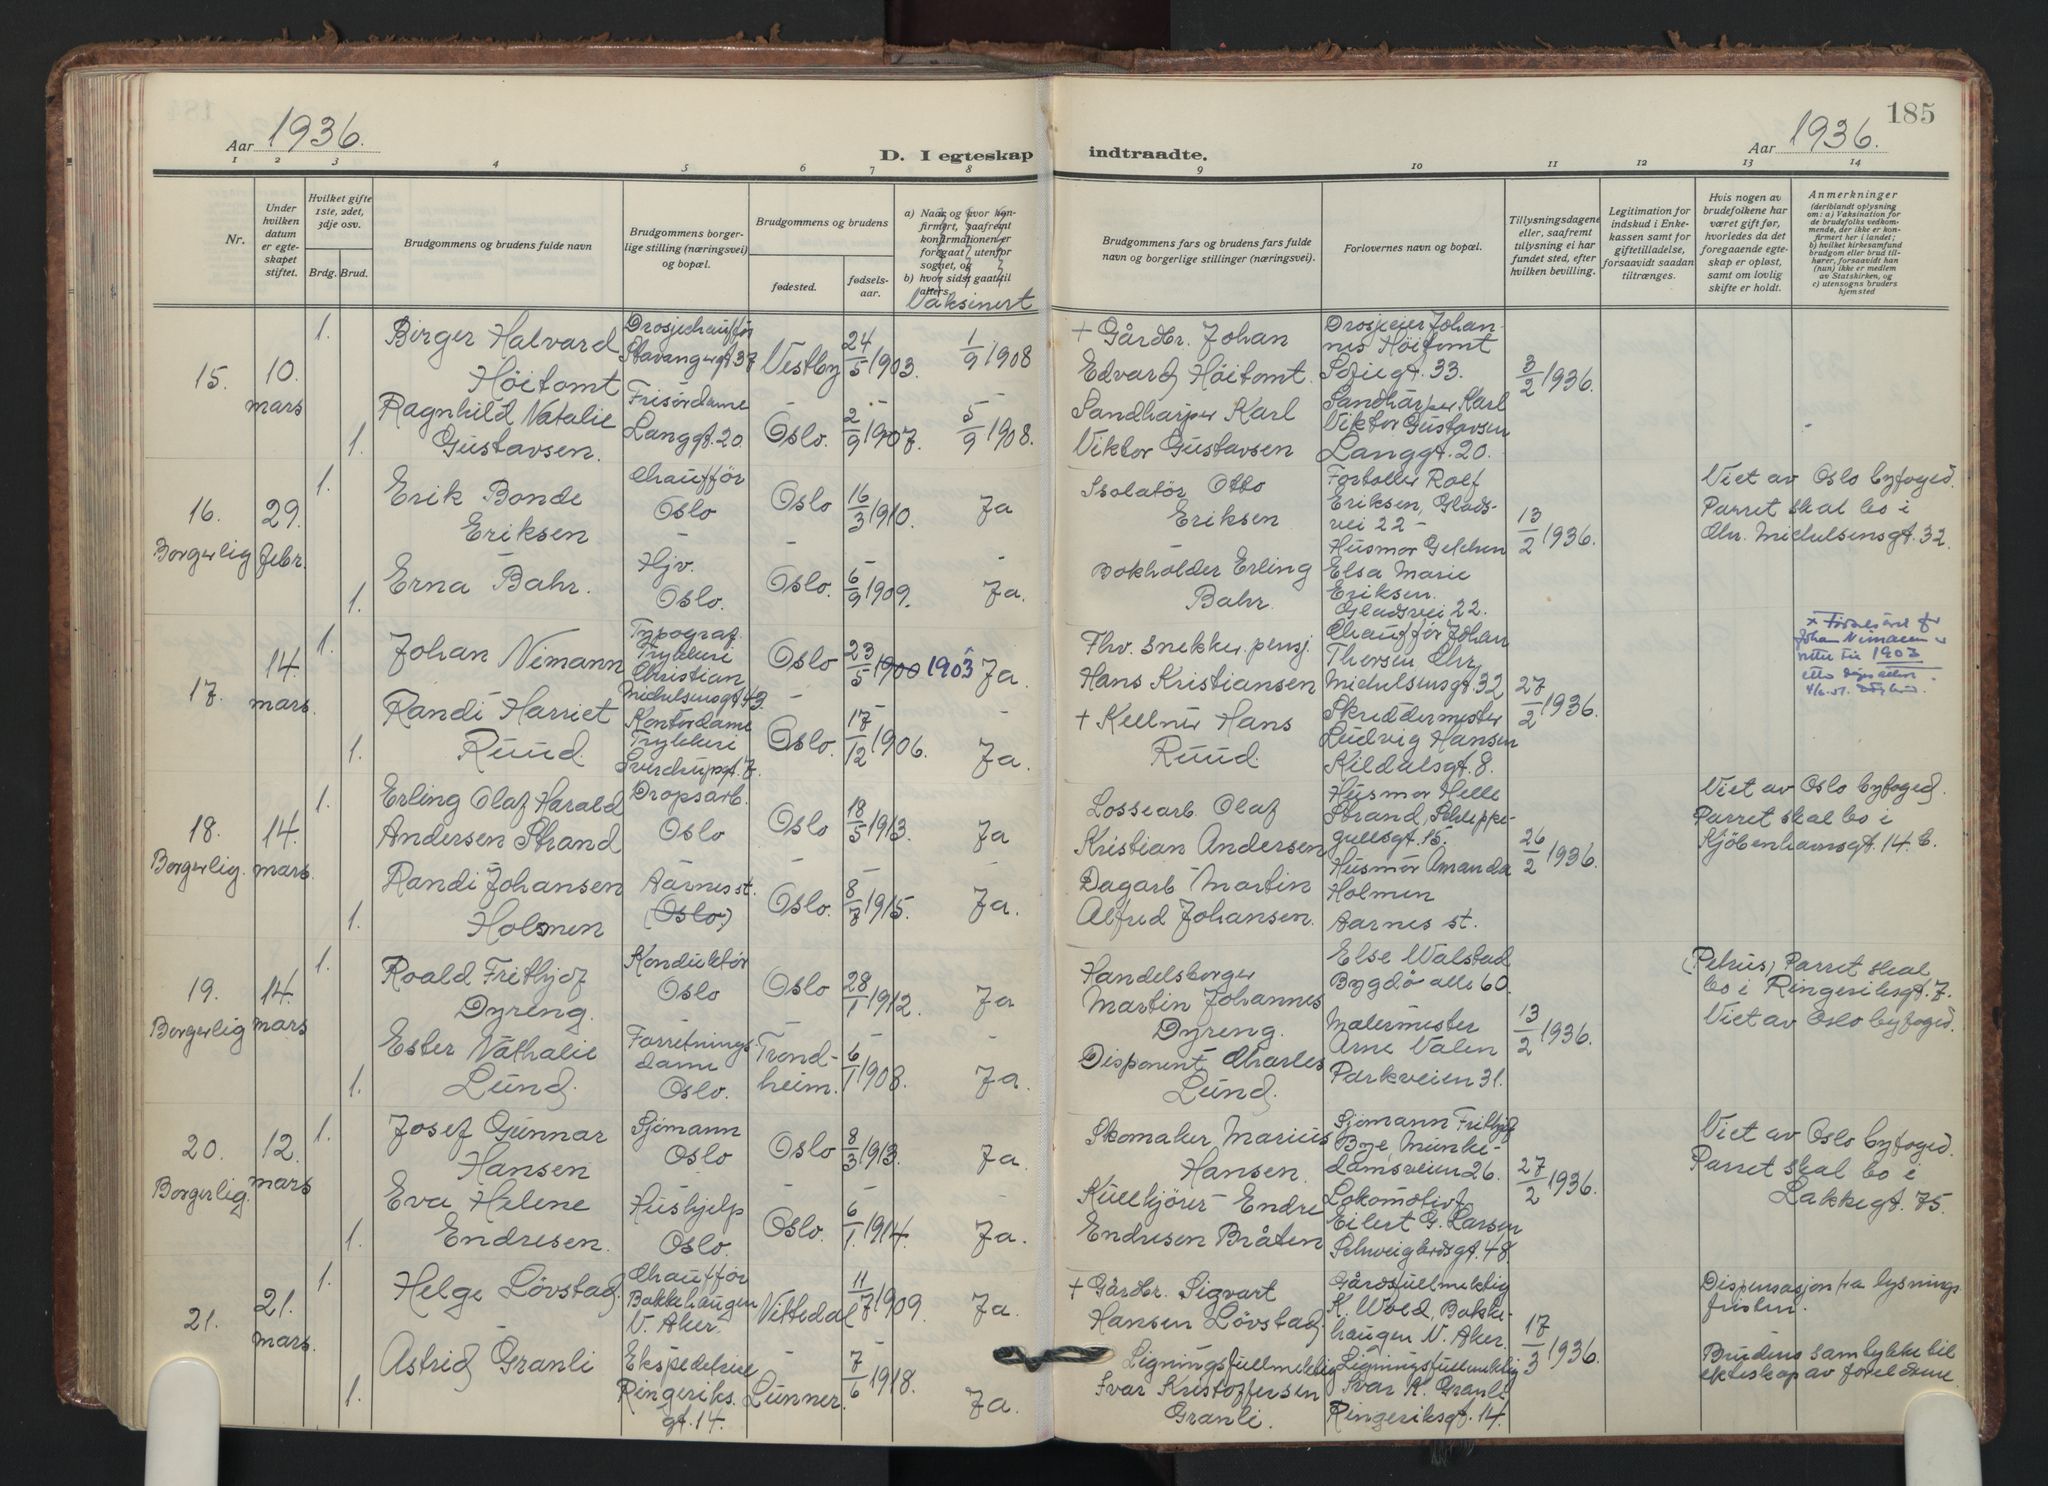 185
Aar 1936.
D. I egteskap
indtraadte.
Aar 1936.
1 2 3 4 5 6 7 8 9 10 11 12 13 14
Nr.
Under hvilken datum er egteskapet stiftet.
Hvilket gifte 1ste, 2det, 3dje osv.
Brdg. Brud.
Brudgommens og brudens fulde navn
Brudgommens borgerlige stilling (næringsvei) og bopæl.
Brudgommens og brudens
fødested.
fødselsaar.
a) Naar og hvor konfirmert, saafremt konfirmationen er foregaat utenfor sognet, og
b) hvor sidst gaat til alters.
Vaksinert
Brudgommens fars og brudens fars fulde navn og borgerlige stillinger (næringsvei).
Forlovernes navn og bopæl.
Tillysningsdagene eller, saafremt tillysning ei har fundet sted, efter hvilken bevilling.
Legitimation for indskud i Enkekassen samt for giftetilladelse, forsaavidt saadan tiltrænges.
Hvis nogen av brudefolkene har været gift før, hvorledes da det foregaaende egteskap er opløst, samt om lovlig skifte er holdt.
Anmerkninger
(deriblandt oplysning om: a) Vaksination for de brudefolks vedkommende, der ikke er konfirmert her i landet; b) hvilket kirkesamfund brudgom eller brud tilhører, forsaavidt han (hun) ikke er medlem av Statskirken, og c) utensogns bruders hjemsted
15. 10. mars
1. Birger Halvard Höitomt
Drosjechaufför Stavangergt. 37
Vestby 24/5 1903. 1/9 1908
+ Gårdbr. Johan Edvard Höitomt.
Drosjeeier Johannes Höitomt Sofiegt. 33.
3/2 1936.
1. Ragnhild Natalie Gustavsen.
Frisördame Langgt. 20
Oslo. 2/9 1907. 5/9 1908.
Sandharper Karl Viktor Gustavsen
Sandharper Karl Viktor Gustavsen Langgt. 20.
16. Borgerlig 29. febr.
1. Erik Bonde Eriksen
Chaufför Oslo
Oslo 16/3 1910. Ja
Isolatör Otto Eriksen
Fortoller Rolf Eriksen, Gladsvei 22 -
13/2 1936.
Viet av Oslo byfoged.
Parret skal bo i
Chr. Michelsensgt. 32.
1. Erna Bahr.
Hjv. Oslo.
Oslo. 6/9 1909. Ja.
Bokholder Erling Bahr.
Husmor Elsa Marie Eriksen. Gladsvei 22.
17. 14. mars
1. Johan Nimann
Typograf Trykkeri Christian Michelsensgt 43
Oslo 23/5 1900 1903 Ja.
Fhv. snekker pensj. Hans Kristiansen
Chaufför Johan Thorsen Chr. Michelsensgt. 32
27/2 1936.
x Födselsåret for
Johan Nimann er
rettet til 1903
1. Randi Harriet Ruud.
Kontordame Trykkeri Sverdrupsgt. 7.
Oslo. 17/12 1906. Ja.
+ Kellner Hans Ruud.
Skreddermester Ludvig Hansen Kildalsgt. 8.
18. Borgerlig. 14. mars.
1. Erling Olaf Harald Andersen Strand
Dropsarb. Oslo
Oslo 18/5 1913. Ja
Lossearb. Olaf Kristian Andersen
Husmor Helle Strand, Schleppegrellsgt. 15.
26/2 1936.
Viet av Oslo byfoged.
Parret skal bo i
Kjöbenhavnsgt. 14. b.
1. Randi Johansen Holmen
Aarnes st. (Oslo)
Oslo. 8/7 1915. Ja.
Dagarb. Martin Alfred Johansen.
Husmor Amanda Holmen Aarnes st.
19. Borgerlig 14. mars
1. Roald Frithjof Dyreng.
Konduktör Oslo
Oslo 28/1 1912. Ja
Handelsborger Martin Johannes Dyreng.
Else Walstad Bygdö alle 60.
13/2 1936.
(Petrus) Parret skal
bo i Ringeriksgt. 7.
Viet av Oslo byfoged.
1. Ester Nathalie Lund.
Forretningsdame Oslo.
Trondheim. 6/1 1908. Ja.
Disponent Charles Lund.
Malermester Arne Valen Parkveien 31.
20. Borgerlig. 12. mars
1. Josef Gunnar Hansen
Sjömann Oslo
Oslo 8/3 1913. Ja.
Skomaker Marius Hansen.
Sjömann Frithjof Bye, Munkedamsveien 26.
27/2 1936.
Viet av Oslo byfoged.
Parret skal bo i
Lakkegt. 75.
1. Eva Helene Endresen.
Hushjelp Oslo.
Oslo. 6/1. 1914. Ja.
Kullkjörer Endre Endresen Bråten
Lokomotivf. Eilert G. Larsen Schweigårdsgt. 48.
21. 21. mars.
1. Helge Lövstad.
Chaufför Bakkehaugen V. Aker.
Nittedal 11/7 1909. Ja.
+ Gårdbr. Sigvart Hansen Lövstad.
Gårdsfullmektig K. Wold, Bakkehaugen V. Aker.
17/3 1936.
Dispensasjon fra lysningsfristen.
1. Astrid Granli
Ekspeditrise Ringeriksgt. 14.
Lunner. 7/6 1918. Ja.
Ligningsfullmektig Ivar Kristoffersen Granli.
Ligningsfullmektig Ivar K. Granli Ringeriksgt. 14.
Brudens samtykke til
ekteskap av foreldrene.